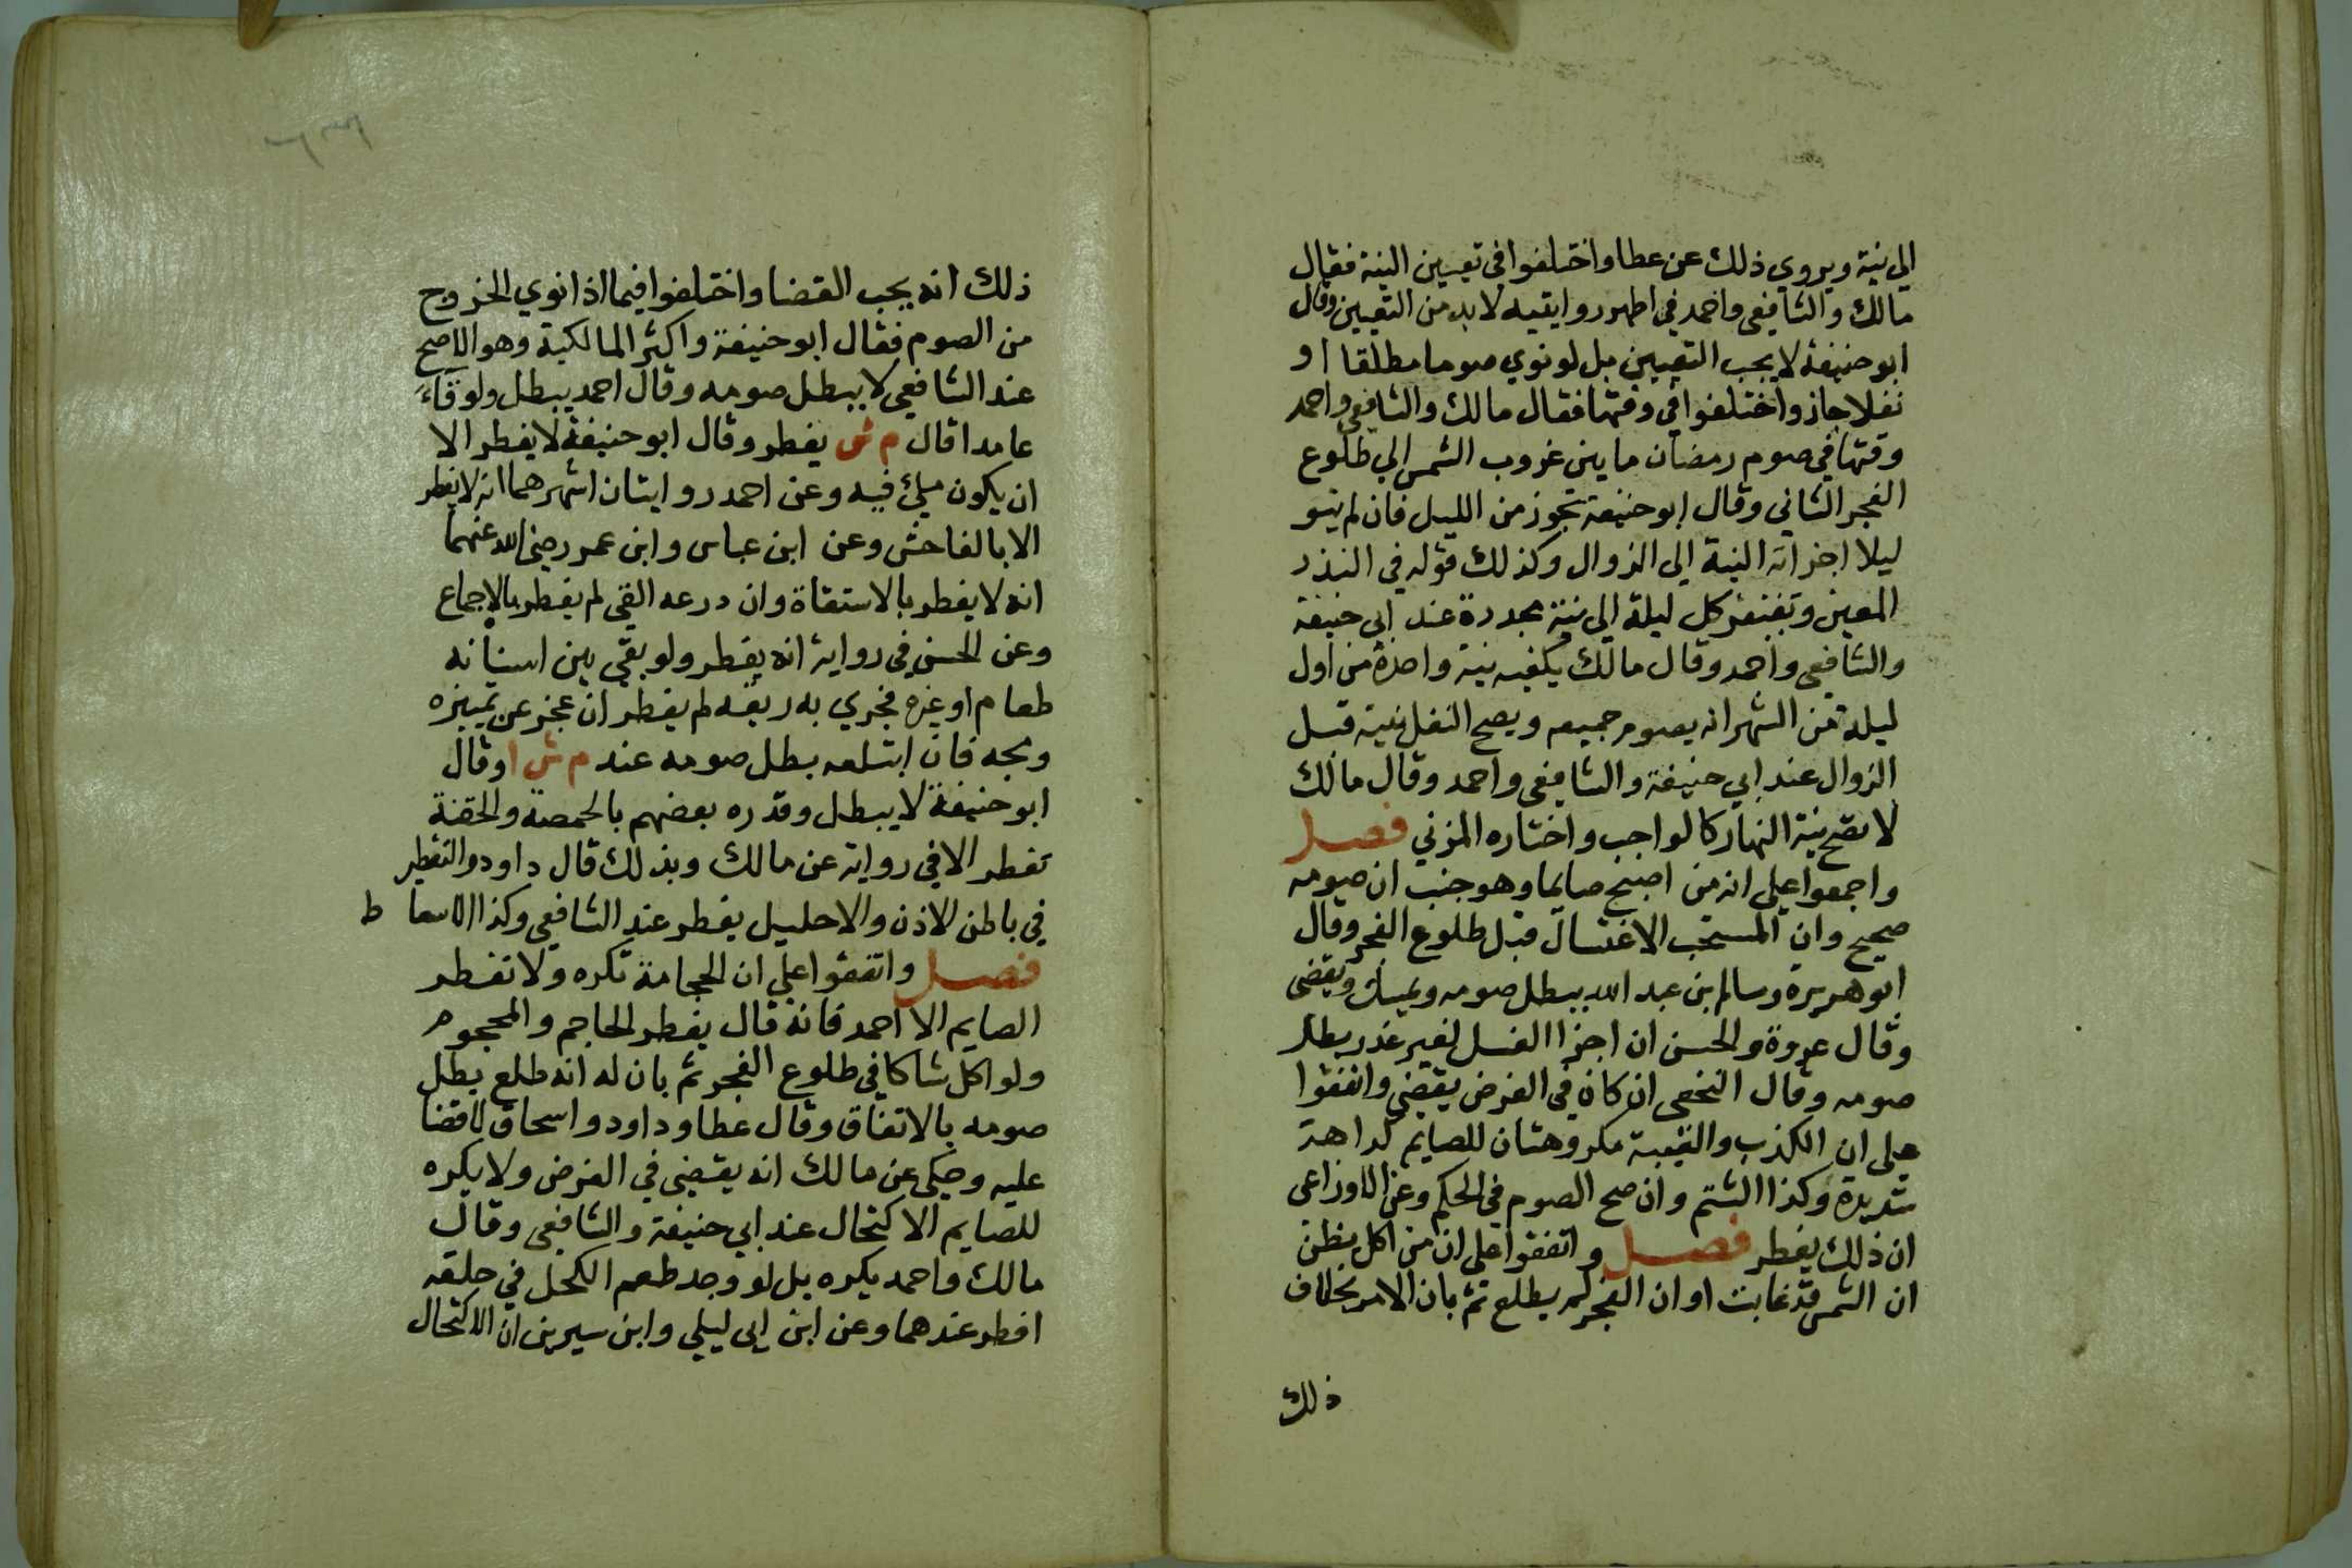 الي نية ويروي ذلك عن عطا واختلفوا في تعيين النية فقال
مالك والشافعي واحمد في اظهر روايتيه لابد من التعيين وقال
ابوحنيفة لا يجب التعيين بل لو نوي صوما مطلقا او
نفلا جاز واختلفوا في وقتها فقال مالك والشافعي واحمد
وقتها في صوم رمضان ما بين غروب الشمس الي طلوع
الفجر الثاني وقال ابوحنيفة تجوز من الليل فان لم ينو
ليلا اجزاته النية الي الزوال وكذلك قوله في النذر
المعين وتفتقر كل ليلة الي نية مجددة عند ابي حنيفة
والشافعي واحمد وقال مالك يكفيه نية واحدة من اول
ليلة من الشهر انه يصوم جميعه ويصح النفل بنية قبل
الزوال عند ابي حنيفة والشافعي واحمد وقال مالك
لا تصح بنية النهار كالواجب واختاره المزني فصل
واجمعوا علي انه من اصبح صايما وهو جنب ان صومه
صحيح وان المستحب الاغتسال قبل طلوع الفجر وقال
ابوهريرة وسالم بن عبد الله يبطل صومه ويمسك ويقضي
وقال عروة والحسن ان اخر الغسل لغير عذر بطل
صومه وقال النخعي ان كان في الفرض يقضي واتفقوا
علي ان الكذب والغيبة مكروهتان للصايم كراهة
شديدة وكذا الشتم وان صح الصوم في الحكم وعن الاوزاعي
ان ذلك يفطر فصل واتفقوا علي ان من اكل يظن
ان الشمس قد غابت او ان الفجر لم يطلع ثم بان الامر بخلاف
ذلك
ذلك انه يجب القضا واختلفوا فيما اذا نوي الخروج
من الصوم فقال ابوحنيفة واكثر المالكية وهو الاصح
عند الشافعي لا يبطل صومه وقال احمد يبطل ولو قاء
عامدا قال م ش يفطر وقال ابوحنيفة لا يفطر الا
ان يكون ملئ فيه وعن احمد روايتان اشهرهما انه لا يفطر
الا بالفاحش وعن ابن عباس وابن عمر رضي الله عنهما
انه لا يفطر بالاستقاة وان درعه القي لم يفطر بالاجماع
وعن الحسن في رواية انه يفطر ولو بقي بين اسنانه
طعام او غيره فجري به ريقه لم يفطر ان عجز عن تمييزه
ومجه فان ابتلعه بطل صومه عند م ش ا وقال
ابوحنيفة لا يبطل وقدره بعضهم بالحمصة والحقنة
تفطر الا في رواية عن مالك وبذلك قال داود والتقطير
في باطن الاذن والاحليل يفطر عند الشافعي وكذا الاسعا ط
فصل واتفقوا علي ان الحجامة تكره ولا تفطر
الصايم الا احمد فانه قال يفطر الحاجم والمحجوم
ولو اكل شاكا في طلوع الفجر ثم بان له انه طلع بطل
صومه بالاتفاق وقال عطا وداود واسحاق لا قضا
عليه وحكي عن مالك انه يقضي في الفرض ولا يكره
للصايم الاكتحال عند ابي حنيفة والشافعي وقال
مالك واحمد يكره بل لو وجد طعم الكحل في حلقه
افطر عندهما وعن ابن ابي ليلي وابن سيرين ان الاكتحال